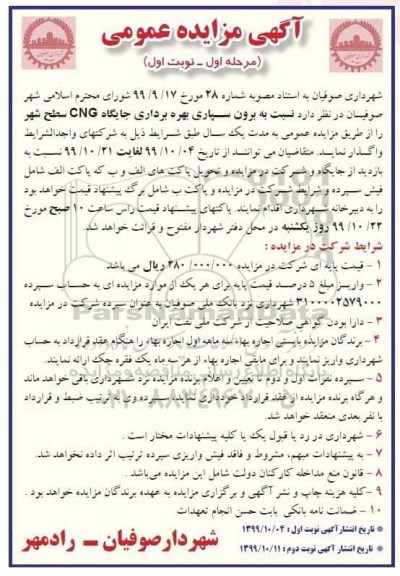 آگهی مزایده عمومی
(مرحله اول ـ نوبت اول)
شهرداری صوفیان به استناد مصوبه شماره ۲۸ مورخ ۹۹/۹/۱۷ شورای محترم اسلامی شهر
صوفیان در نظر دارد نسبت به برون سپاری بهره برداری جایگاه CNG سطح شهر
را از طریق مزایده عمومی به مدت یک سال طبق شرایط ذیل به شرکتهای واجدالشرایط
واگذار نماید. متقاضیان می توانند از تاریخ ۹۹/۱۰/۰۴ لغایت ۹۹/۱۰/۲۱ نسبت به
بازدید از جایگاه و شرکت در مزایده و تحویل پاکت های الف و ب که پاکت الف شامل
فیش سپرده و شرایط شرکت در مزایده و پاکت ب شامل برگ پیشنهاد قیمت خواهد بود
را به دبیرخانه شهرداری اقدام نمایند. پاکتهای پیشنهاد قیمت راس ساعت ۱۰ صبح مورخ
۹۹/۱۰/۲۲ روز یکشنبه در محل دفتر شهردار مفتوح و قرائت خواهد شد.
شرایط شرکت در مزایده :
۱ - قیمت پایه ای شرکت در مزایده ۲۸۰/۰۰۰/۰۰۰ ریال می باشد
۲ - واریز مبلغ ۵ درصد قیمت پایه برای هر یک از موارد مزایده ای به حساب سپرده
۳۱۰۰۰۰۲۵۷۹۰۰۰ شهرداری نزد بانک ملی صوفیان به عنوان سپرده شرکت در مزایده
۳ - دارا بودن گواهی صلاحیت از شرکت ملی نفت ایران
۴ - برندگان مزایده بایستی اجاره بهاء سه ماهه اول اجاره بهاء را هنگام عقد قرارداد به حساب
شهرداری واریز نمایند و برای مابقی اجاره بهاء از هر سه ماه یک فقره چک ارائه نمایند.
۵ - سپرده نفرات اول و دوم تا تعیین و اعلام برنده مزایده نزد شهرداری باقی خواهد ماند
و هرگاه برنده مزایده از عقد قرارداد خودداری نماید، سپرده وی به ترتیب ضبط و قرارداد
با نفر بعدی منعقد خواهد شد.
۶ - شهرداری در رد یا قبول یک یا کلیه پیشنهادات مختار است .
۷ - به پیشنهادات مبهم، مشروط و فاقد فیش واریزی سپرده ترتیب اثر داده نخواهد شد.
۸ - قانون منع مداخله کارکنان دولت شامل این مزایده می‌باشد .
۹ -کلیه هزینه چاپ و نشر آگهی و برگزاری مزایده به عهده برندگان مزایده خواهد بود .
۱۰ - ضمانت نامه بانکی بابت حسن انجام تعهدات
* تاریخ انتشار آگهی نوبت اول : ۱۳۹۹/۱۰/۰۴
* تاریخ انتشار آگهی نوبت دوم : ۱۳۹۹/۱۰/۱۱
شهردار صوفیان ـ رادمهر
ParsNamadData
پایگاه اطلاع رسانی مناقصه و مزایده